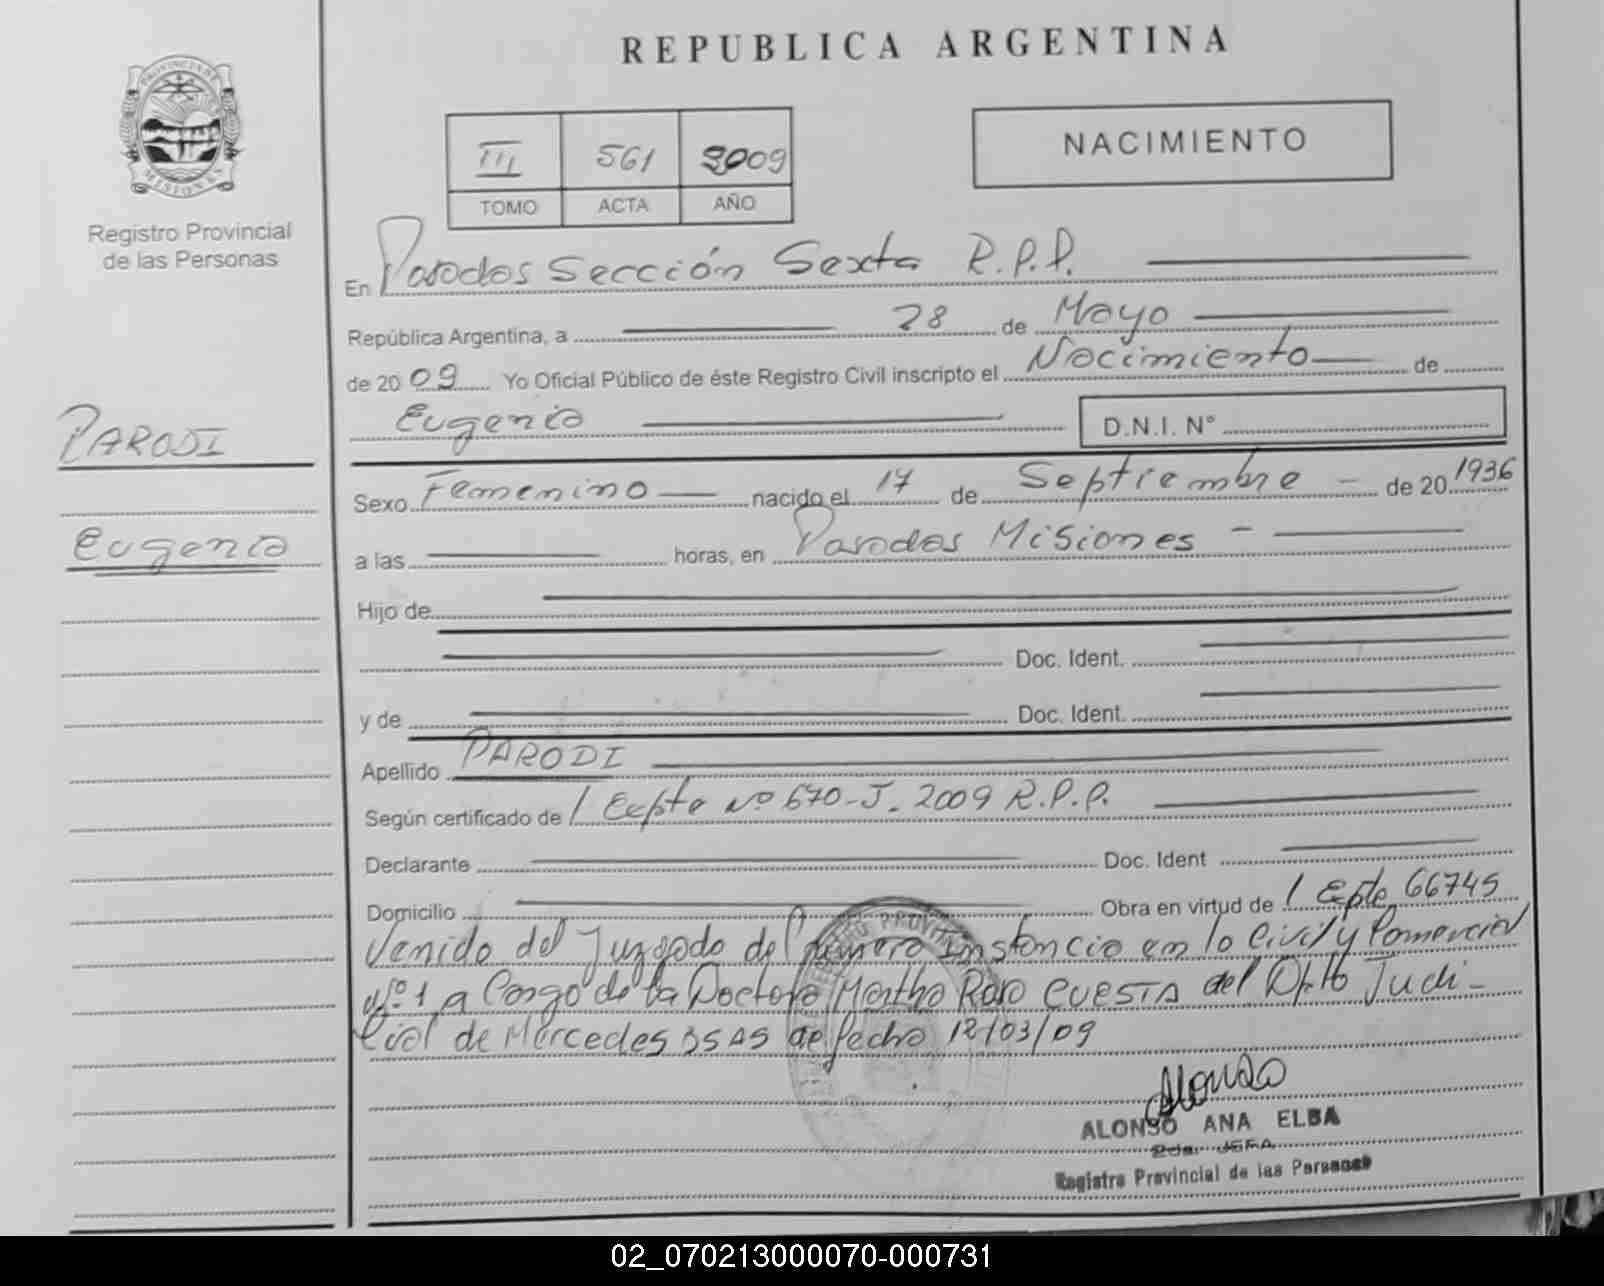 REPUBLICA ARGENTINA
PROVINCIA DE
MISIONES
Registro Provincial
de las Personas
III 561 2009
TOMO ACTA AÑO
NACIMIENTO
En Posadas Sección Sexta R.P.P.
República Argentina, a 28 de Mayo
de 20 09 Yo Oficial Público de éste Registro Civil inscripto el Nacimiento de
Eugenia D.N.I. Nº
PARODI
Sexo Femenino nacido el 17 de Septiembre de 20 1936
Eugenia
a las horas, en Posadas Misiones
Hijo de
Doc. Ident.
y de Doc. Ident.
Apellido PARODI
Según certificado de / Expte Nº 670-J-2009 R.P.P.
Declarante Doc. Ident
Domicilio Obra en virtud de / Expte 66745
Venido del Juzgado de Primera Instancia en lo Civil y Comercial
Nº 1 a Cargo de la Doctora Martha Raso CUESTA del Dpto Judi-
cial de Mercedes BS AS de fecha 12/03/09
Alonso
ALONSO ANA ELBA
2da. JEFA
Registro Provincial de las Personas
02_070213000070-000731